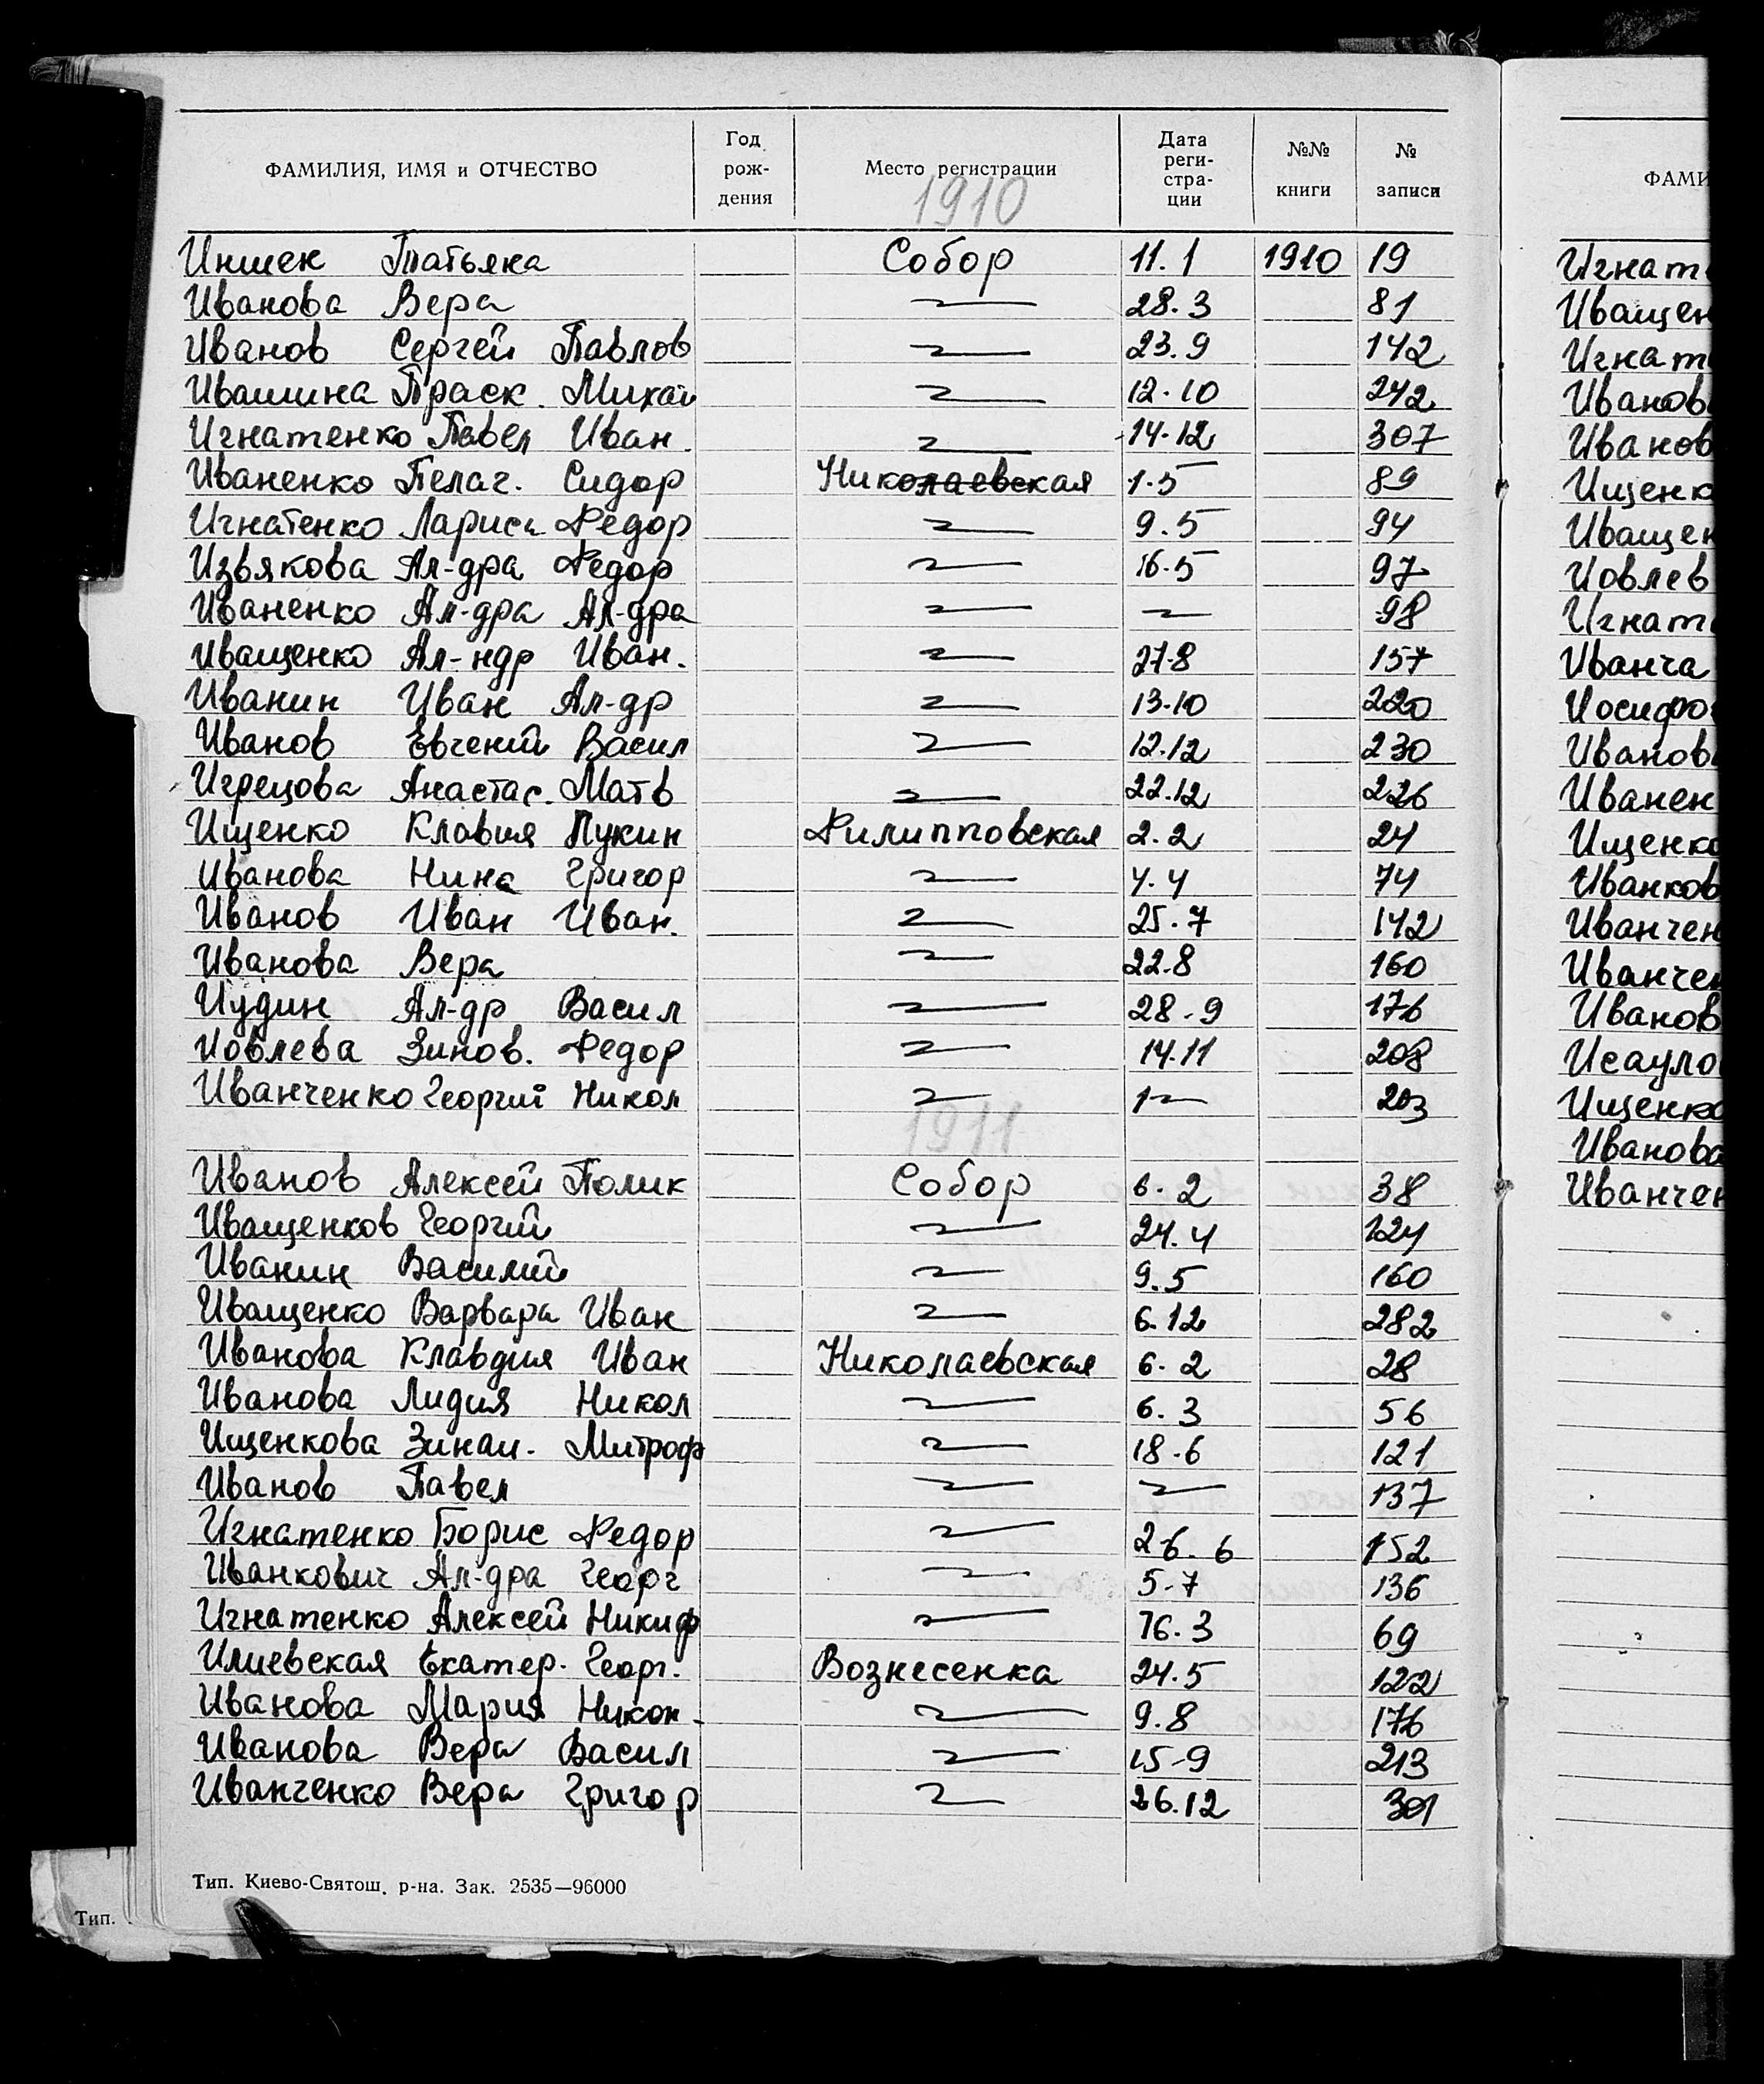 ФАМИЛИЯ, ИМЯ и ОТЧЕСТВО Год рож- дения Место регистрации Дата реги- стра- ции №№ книги № записи
1910
Иншек Татьяна Собор 11.1 1910 19
Иванова Вера 28.3 81
Иванов Сергей Павлов 23.9 142
Ивашина Праск. Михай 12.10 242
Игнатенко Павел Иван. 14.12 307
Иваненко Пелаг. Сидор Николаевская 1.5 89
Игнатенко Лариса Федор 9.5 94
Извякова Ал-дра Федор 16.5 97
Иваненко Ал-дра Ал-дра 98
Иващенко Ал-ндр Иван. 27.8 157
Иванин Иван Ал-др 13.10 220
Иванов Евгений Васил 12.12 230
Игрецова Анастас. Матв 22.12 226
Ищенко Клавия Лукин Филипповская 2.2 24
Иванова Нина Григор 4.4 74
Иванов Иван Иван. 25.7 142
Иванова Вера 22.8 160
Иудин Ал-др Васил 28.9 176
Иовлева Зинов. Федор 14.11 208
Иванченко Георгий Никол 1 203
1911
Иванов Алексей Полик Собор 6.2 38
Иващенков Георгий 24.4 124
Иванин Василий 9.5 160
Иващенко Варвара Иван 6.12 282
Иванова Клавдия Иван Николаевская 6.2 28
Иванова Лидия Никол 6.3 56
Ищенкова Зинаи. Митроф 18.6 121
Иванов Павел 137
Игнатенко Борис Федор 26.6 152
Иванкович Ал-дра Георг 5.7 136
Игнатенко Алексей Никиф 16.3 69
Илиевская Екатер. Георг. Вознесенка 24.5 122
Иванова Мария Никон. 9.8 176
Иванова Вера Васил 15.9 213
Иванченко Вера Григор 26.12 301
Тип. Киево-Святош. р-на. Зак. 2535—96000
Тип.
ФАМИ
Игнат
Иващен
Игнат
Иванов
Иванов
Ищенк
Иващен
Иовлев
Игнат
Иванча
Иосифо
Иванов
Иванен
Ищенко
Иванков
Иванчен
Иванчен
Иванов
Исауло
Ищенко
Иванова
Иванчен